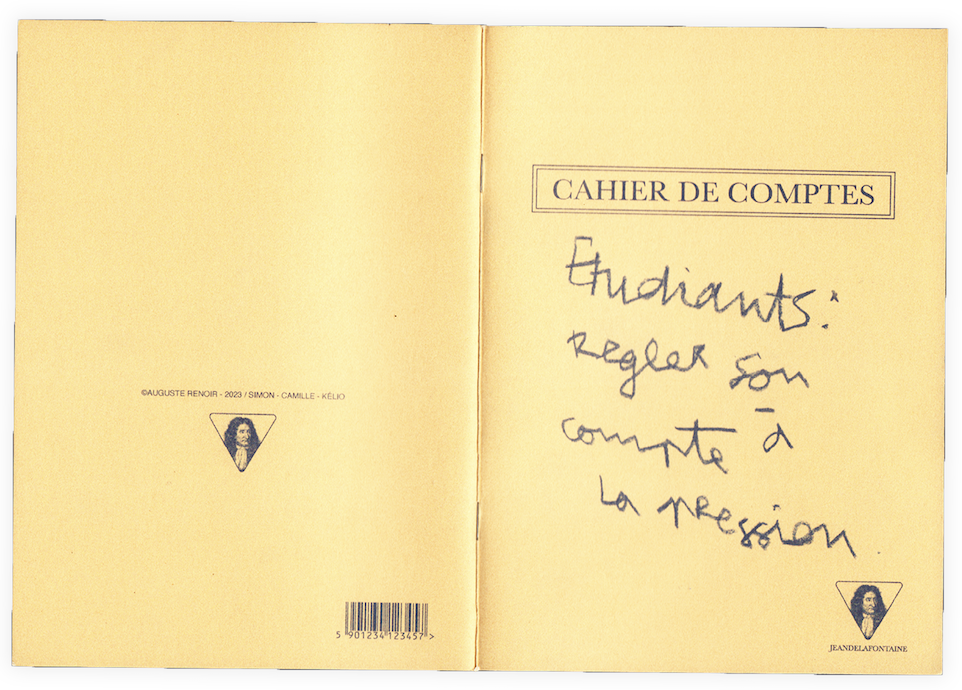 ©AUGUSTE RENOIR - 2023 / SIMON - CAMILLE - KÉLIO
5 901234 123457 >
CAHIER DE COMPTES
Etudiants:
Regler son
compte à
la pression
JEANDELAFONTAINE